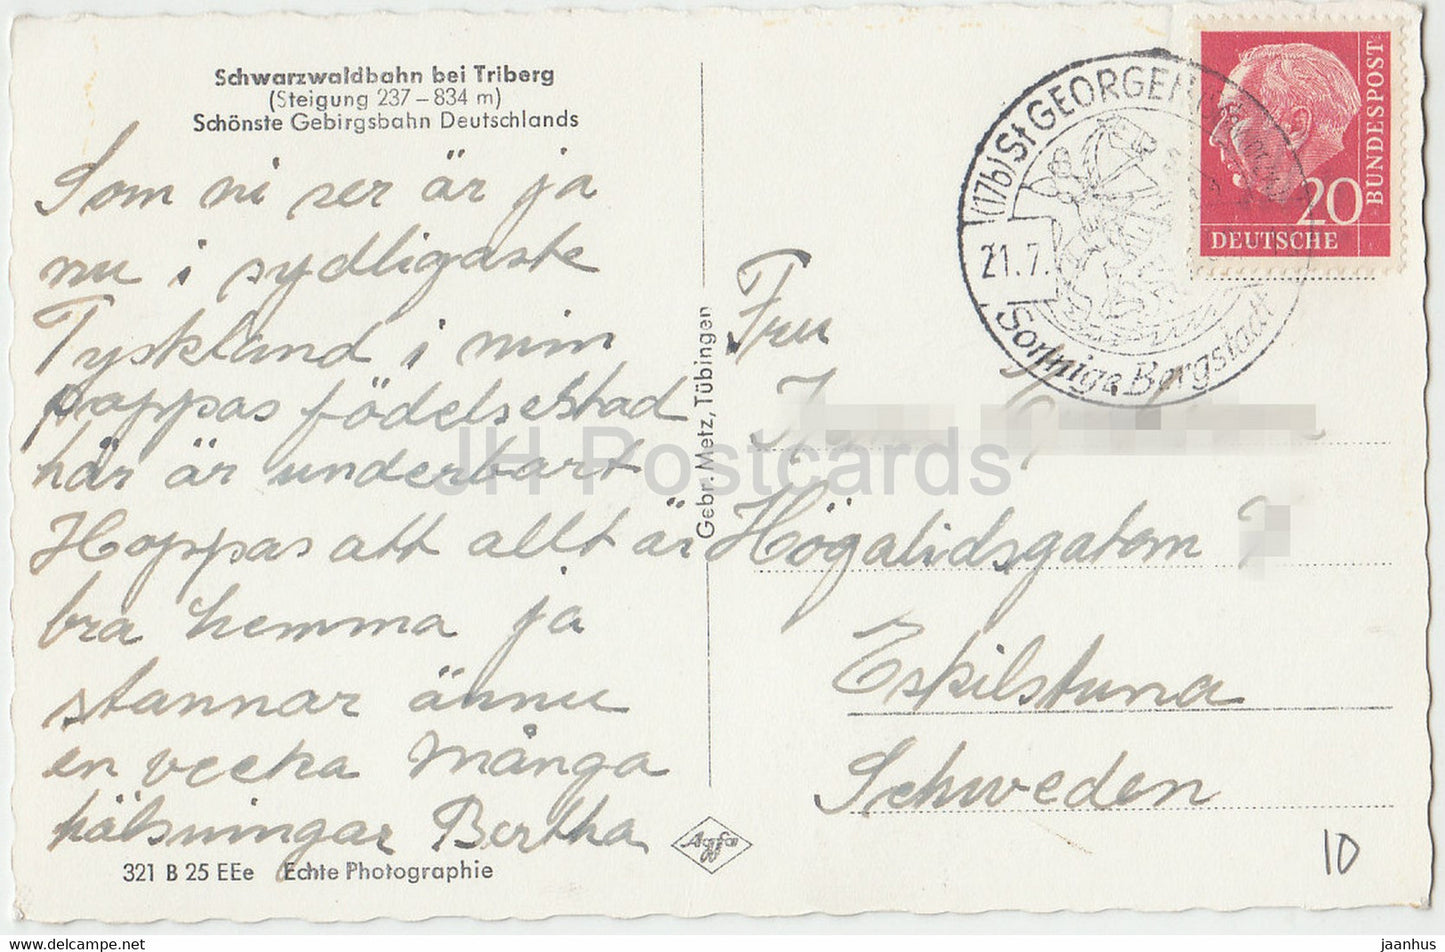 Schwarzwaldbahn bei Triberg
(Steigung 237 – 834 m)
Schönste Gebirgsbahn Deutschlands
Som ni ser är ja
nu i sydligaste
Tyskland i min
pappas födelsestad
här är underbart
Hoppas att allt är
bra hemma ja
stannar ännu
en vecka Många
hälsningar Bertha
321 B 25 EEe Echte Photographie
Gebr. Metz, Tübingen
Agfa
(17b) St GEORGEN
21.7.
Sonnige Bergstadt
BUNDESPOST
20
DEUTSCHE
Fru
Högalidsgatam
Eskilstuna
Schweden
10
JH Postcards
jaanhus